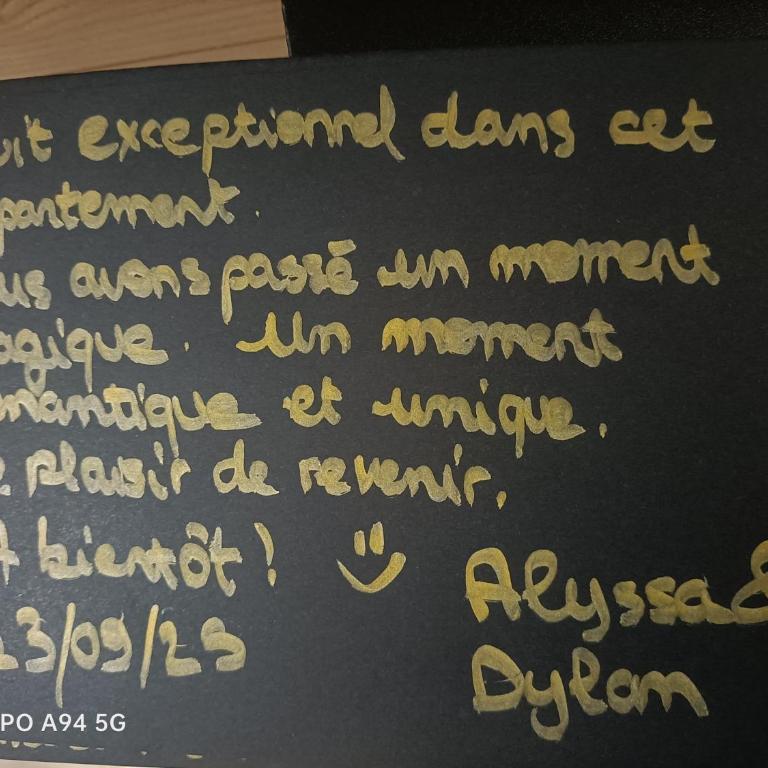 uit exceptionnel dans cet
partement.
us avons passé un moment
agique. Un moment
mantique et unique.
e plaisir de revenir.
A bientôt !
Alyssa &
23/09/23
Dylan
PO A94 5G